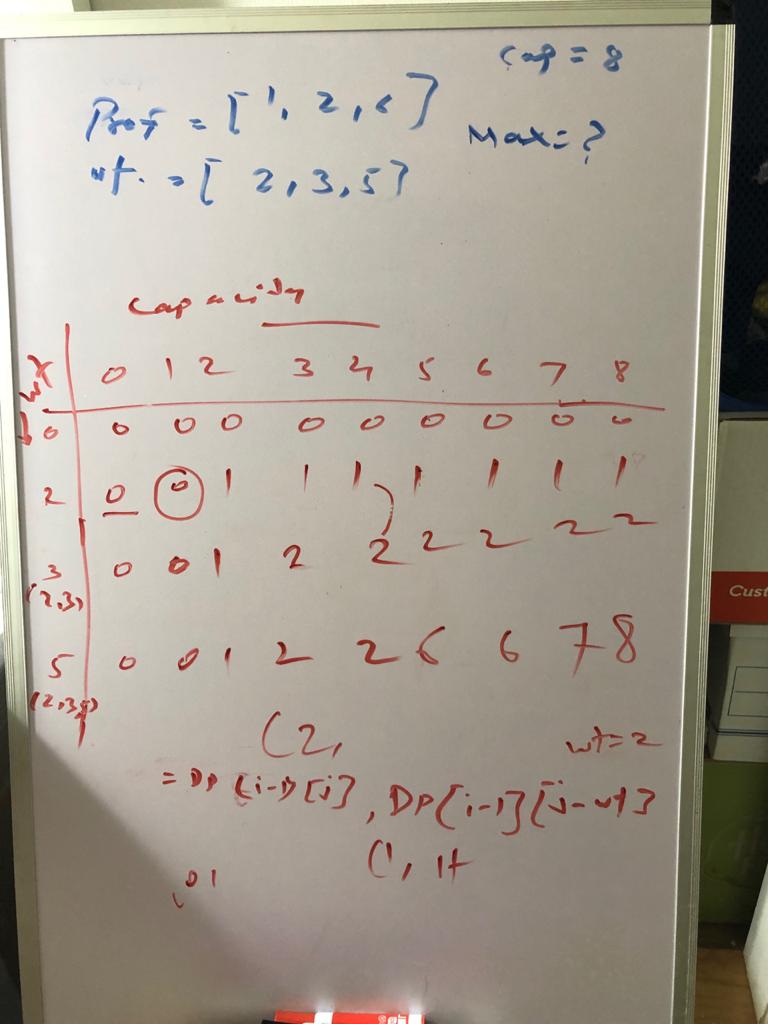 Cap = 8
Prof = [1, 2, 6]
Max = ?
wt. = [2, 3, 5]
Capacity
wt
0 1 2 3 4 5 6 7 8
0 0 0 0 0 0 0 0 0 0
2 0 0 1 1 1 1 1 1 1
3 0 0 1 2 2 2 2 2 2
(2,3)
5 0 0 1 2 2 6 6 7 8
(2,3,5)
(2,
wt=2
= DP[i-1][j], DP[i-1][j-wt]
(1, 1+
01
Cust